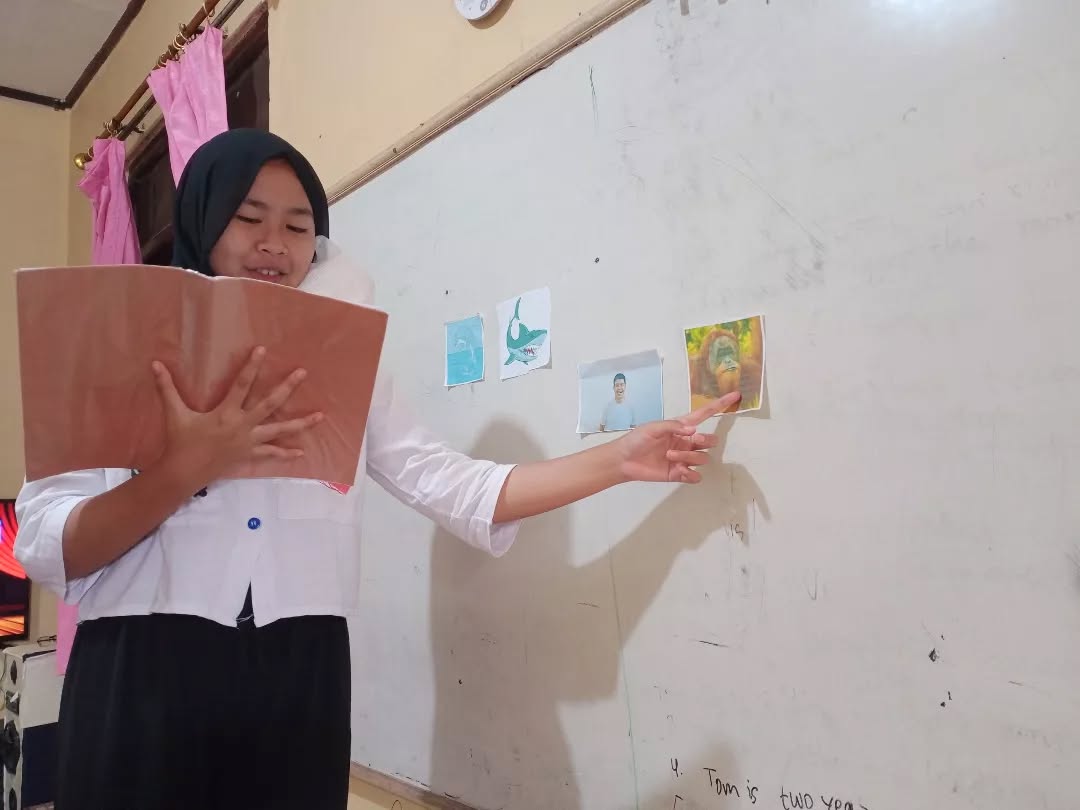 is
4. Tom is two yea